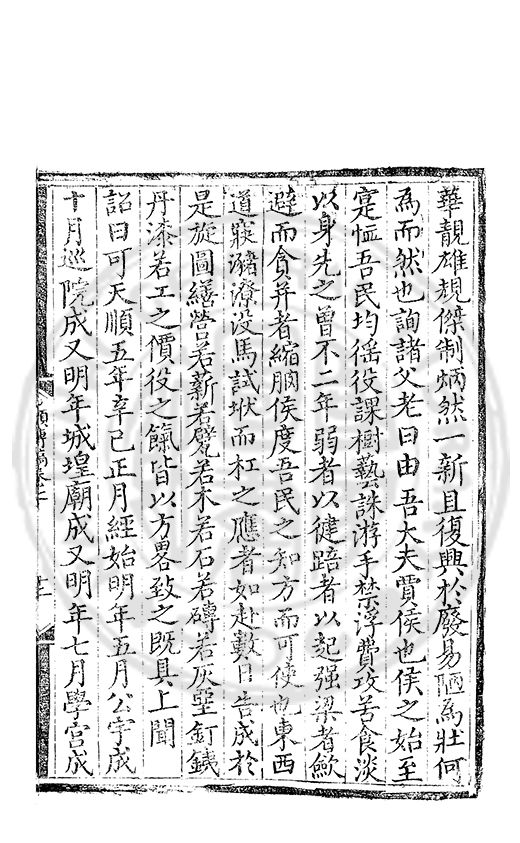 華靚雄規傑制炳然一新且復興於廢易陋為壯何
為而然也詢諸父老曰由吾大夫賈侯也侯之始至
寔恤吾民均徭役課樹藝誅游手禁浮費攻苦食淡
以身先之曾不二年弱者以健踣者以起强梁者歛
避而貪并者縮朒侯度吾民之知方而可使也東西
道衺潴潦没馬試垘而杠之應者如赴數日告成於
是旋圖繕營若薪若甓若木若石若磚若灰堊釘鐵
丹漆若工之價役之餼皆以方畧致之既具上聞
詔曰可天順五年辛巳正月經始明年五月公宇成
十月巡院成又明年城堭廟成又明年七月學宫成